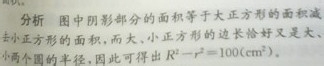 分析 图中阴影部分的面积等于大正方形的面积减
去小正方形的面积,而大、小正方形的边长恰好又是大、
小两个圆的半径,因此可得出 R²-r²=100(cm²).